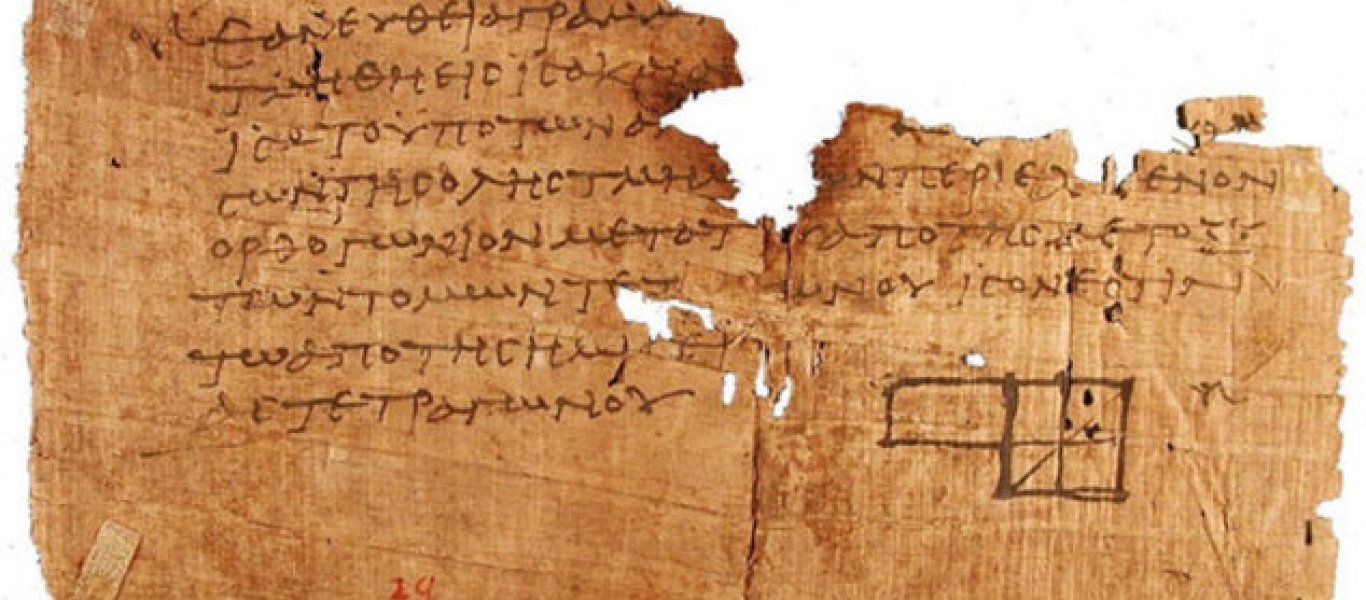 ΕΑΝ ΕΥΘΕΙΑ ΓΡΑΜΜ
ΤΜΗΘΗ ΕΙϹ ΙϹΑ Κ
ΙϹΑ ΤΟ ΥΠΟ ΤΩΝ Α
ϹΩΝ ΤΗϹ ΟΛΗϹ ΤΜΗΜ ΩΝ ΠΕΡΙΕΧ ΜΕΝΟΝ
ΟΡΘΟΓΩΝΙΟΝ ΜΕΤΑ ΤΟ ΑΠΟ ΤΗϹ ΜΕΤΟΞΥ
ΤΩΝ ΤΟΜΩΝ ΤΕΤ ΩΝΟΥ ΙϹΟΝ ΕϹΤΙΝ
ΤΩ ΑΠΟ ΤΗϹ ΗΜΙϹΕΙ
ΑϹ ΤΕΤΡΑΓΩΝΟΥ